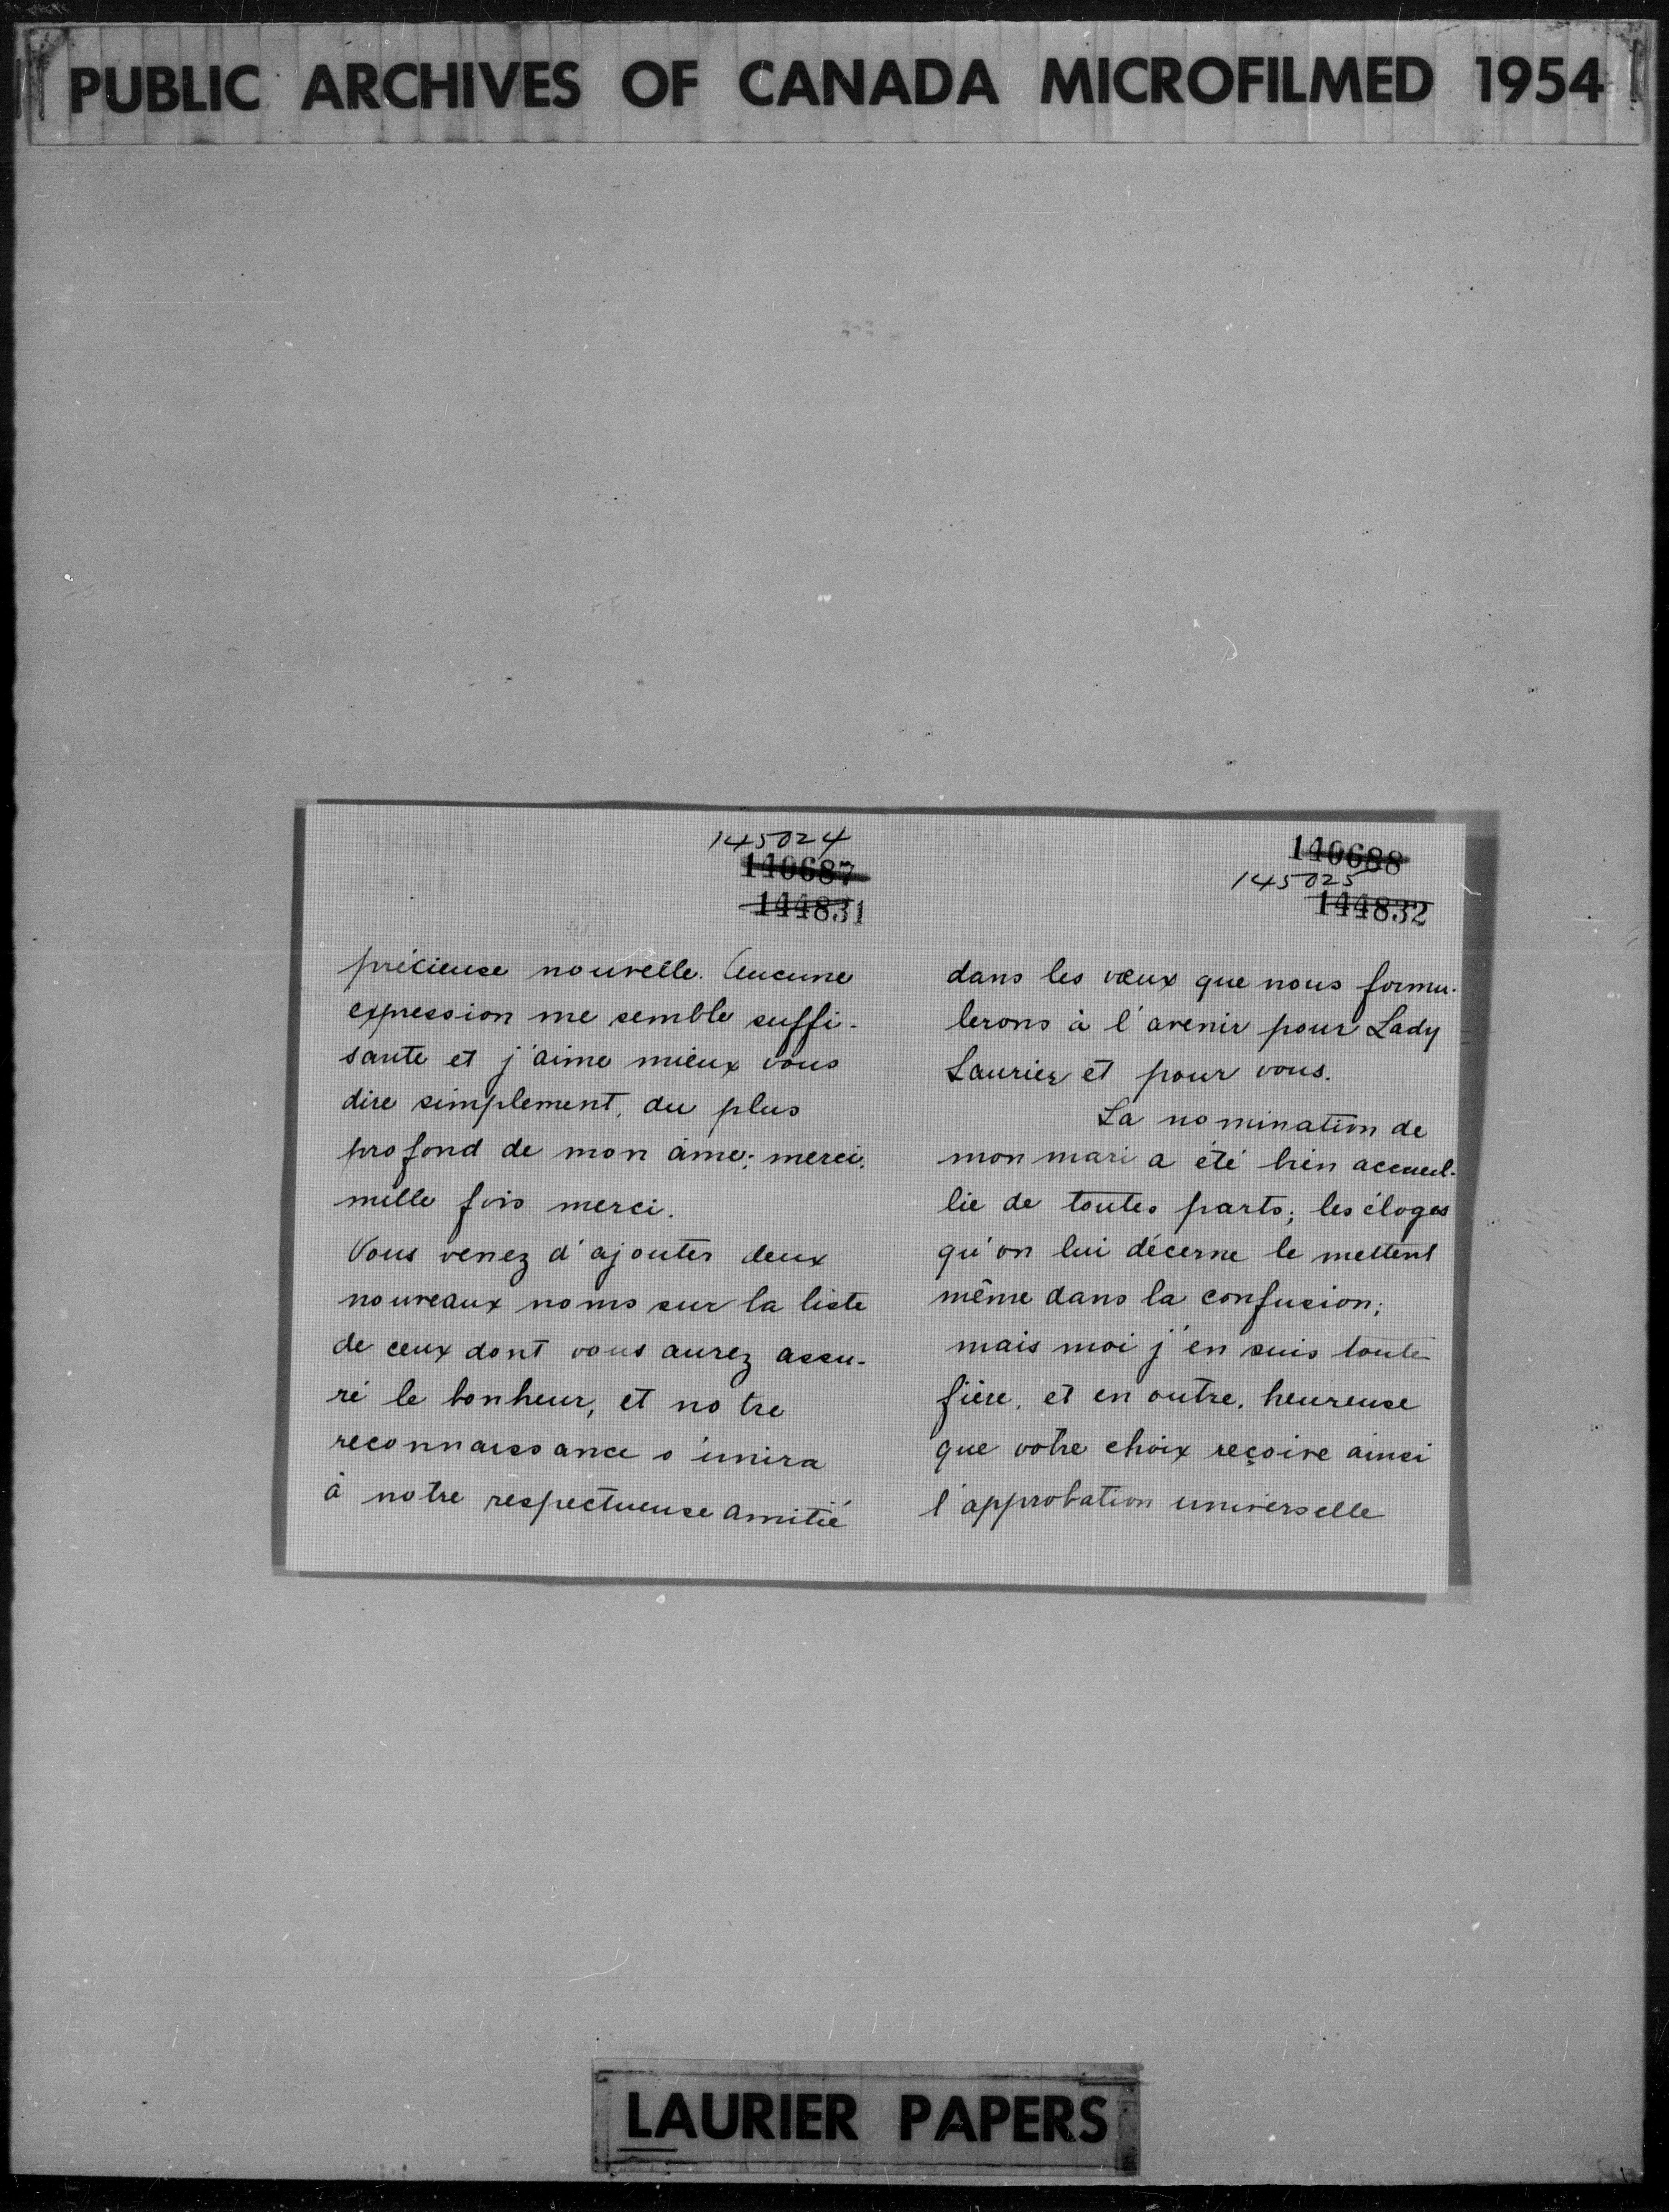 PUBLIC ARCHIVES OF CANADA MICROFILMED 1954
145024
140687
144831
précieuse nouvelle. Aucune
expression me semble suffi-
sante et j'aime mieux vous
dire simplement, du plus
profond de mon âme: merci,
mille fois merci.
Vous venez d'ajouter deux
nouveaux noms sur la liste
de ceux dont vous aurez assu-
ré le bonheur, et notre
reconnaissance s'unira
à notre respectueuse amitié
140688
145025
144832
dans les vœux que nous formu-
lerons à l'avenir pour Lady
Laurier et pour vous.
La nomination de
mon mari a été bien accueil-
lie de toutes parts; les éloges
qu'on lui décerne le mettent
même dans la confusion;
mais moi j'en suis toute
fière, et en outre, heureuse
que votre choix reçoive ainsi
l'approbation universelle
LAURIER PAPERS